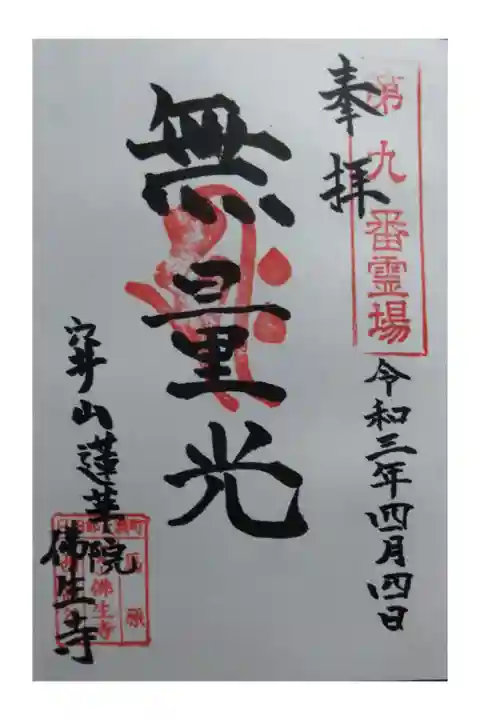 奉拝
第九番霊場
令和三年四月四日
無量光
穽山蓮華院
佛生寺
佛生寺